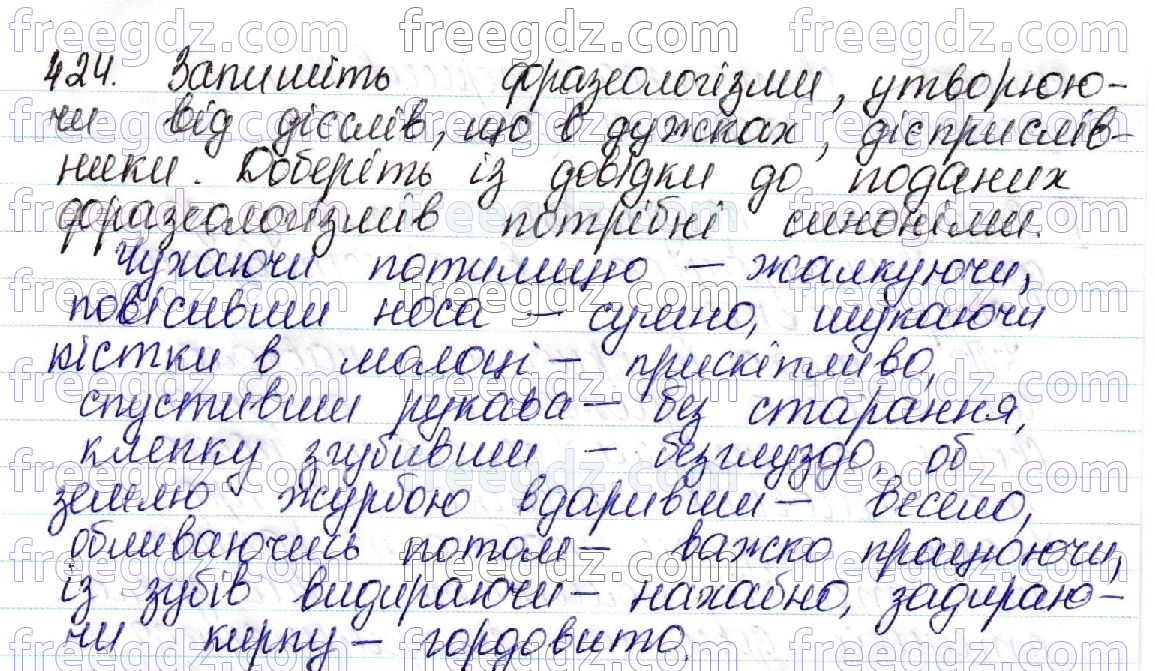 424. Запишіть фразеологізми, утворюю-
чи від дієслів, що в дужках, дієприслів-
ники. Доберіть із довідки до поданих
фразеологізмів потрібні синоніми.
Чухаючи потилицю – жалкуючи,
повісивши носа – сумно, шукаючи
кістки в молоці – прискіпливо,
спустивши рукава – без старання,
клепку згубивши – безглуздо, об
землю журбою вдаривши – весело,
обливаючись потом – важко працюючи,
із зубів видираючи – нахабно, задираю-
чи кирпу – гордовито.
freegdz.com